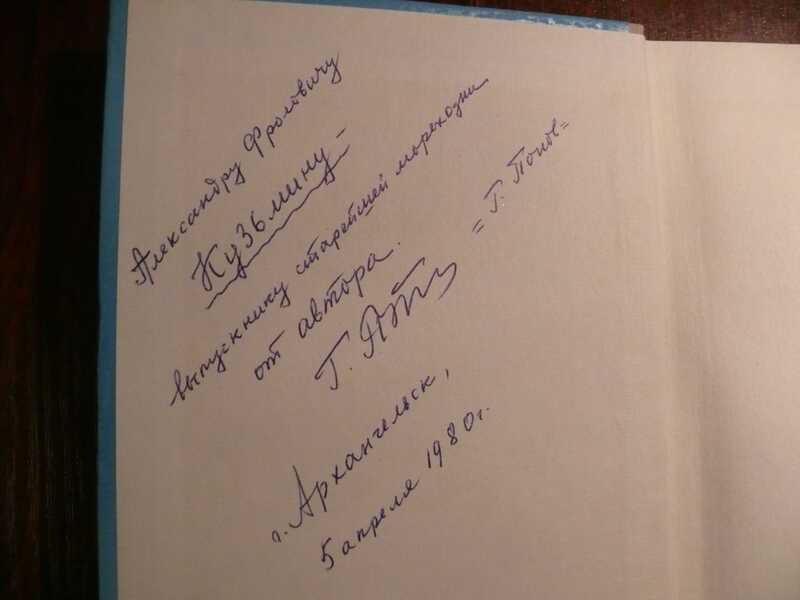 Александру Фроловичу
Кузьмину -
выпускнику старейшей мореходки
от автора.
= Г. Попов =
г. Архангельск,
5 апреля 1980 г.